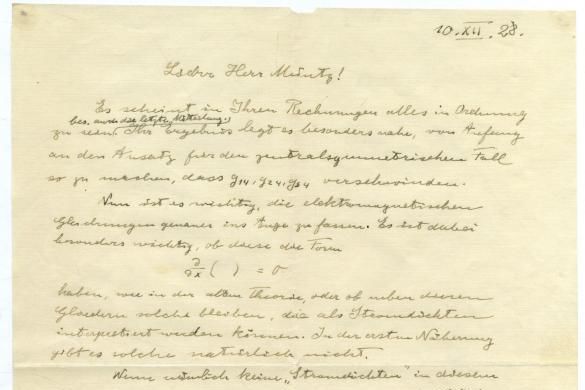 10. XII. 28.
Lieber Herr Müntz!
Es scheint in Ihren Rechnungen alles in Ordnung
bes. durch die letzte Mitteilung.
zu sein. Ihr Ergebnis legt es besonders nahe, von Anfang
an den Ansatz für den zentralsymmetrischen Fall
so zu machen, dass g14, g24, g34 verschwinden.
Nun ist es wichtig, die elektromagnetischen
Gleichungen genauer ins Auge zu fassen. Es ist dabei
besonders wichtig, ob diese die Form
∂/∂x ( ) = 0
haben, wie in der alten Theorie, oder ob neben diesen
Gliedern solche bleiben, die als Stromdichten
interpretiert werden können. In der ersten Näherung
gibt es solche natürlich nicht.
Wenn nämlich keine „Stromdichten" in diesem